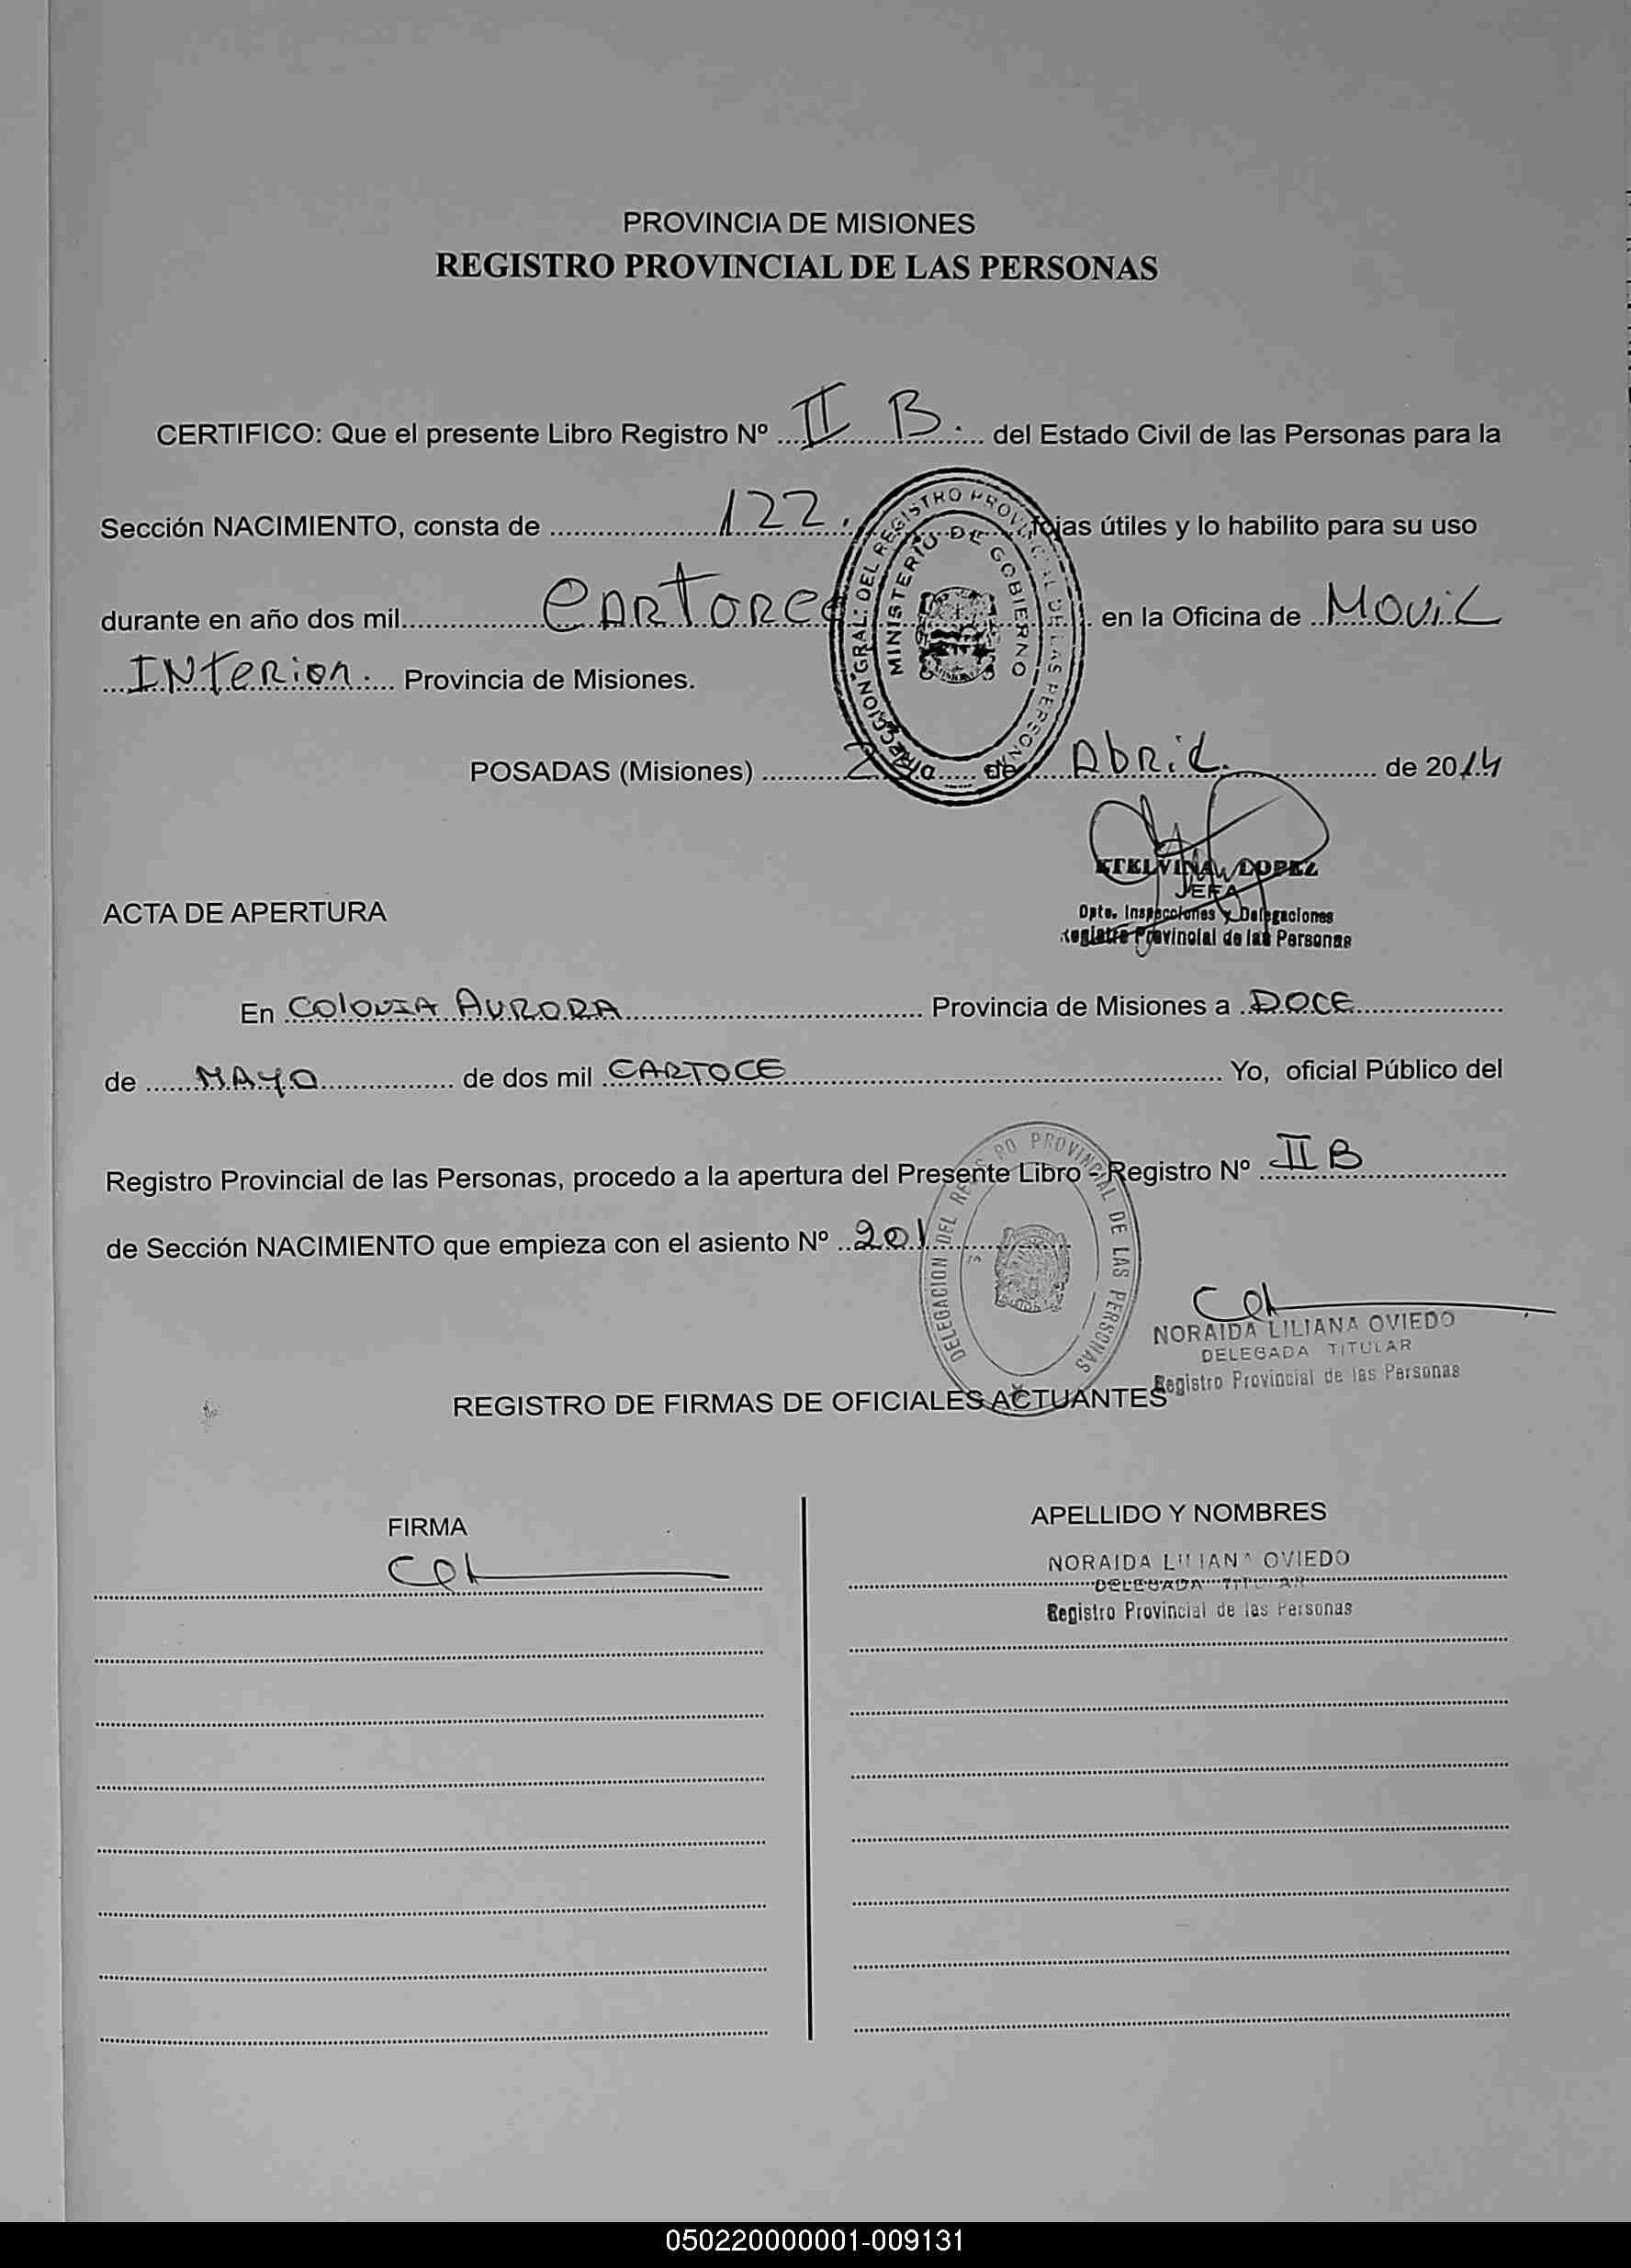 PROVINCIA DE MISIONES
REGISTRO PROVINCIAL DE LAS PERSONAS
CERTIFICO: Que el presente Libro Registro Nº II B. del Estado Civil de las Personas para la
Sección NACIMIENTO, consta de 122. fojas útiles y lo habilito para su uso
durante en año dos mil CARTORCE en la Oficina de MOVIL
INTERIOR. Provincia de Misiones.
DIRECCION GRAL. DEL REGISTRO PROVINCIAL DE LAS PERSONAS
MINISTERIO DE GOBIERNO
POSADAS (Misiones) de Abril. de 2014
ETELVINA LOPEZ
JEFA
Dpto. Inspecciones y Delegaciones
Registro Provincial de las Personas
ACTA DE APERTURA
En COLONIA AURORA Provincia de Misiones a DOCE
de MAYO de dos mil CARTOCE Yo, oficial Público del
Registro Provincial de las Personas, procedo a la apertura del Presente Libro - Registro Nº II B
de Sección NACIMIENTO que empieza con el asiento Nº 201
DELEGACION DEL REGISTRO PROVINCIAL DE LAS PERSONAS
NORAIDA LILIANA OVIEDO
DELEGADA TITULAR
Registro Provincial de las Personas
REGISTRO DE FIRMAS DE OFICIALES ACTUANTES
FIRMA
APELLIDO Y NOMBRES
NORAIDA LILIANA OVIEDO
DELEGADA TITULAR
Registro Provincial de las Personas
050220000001-009131